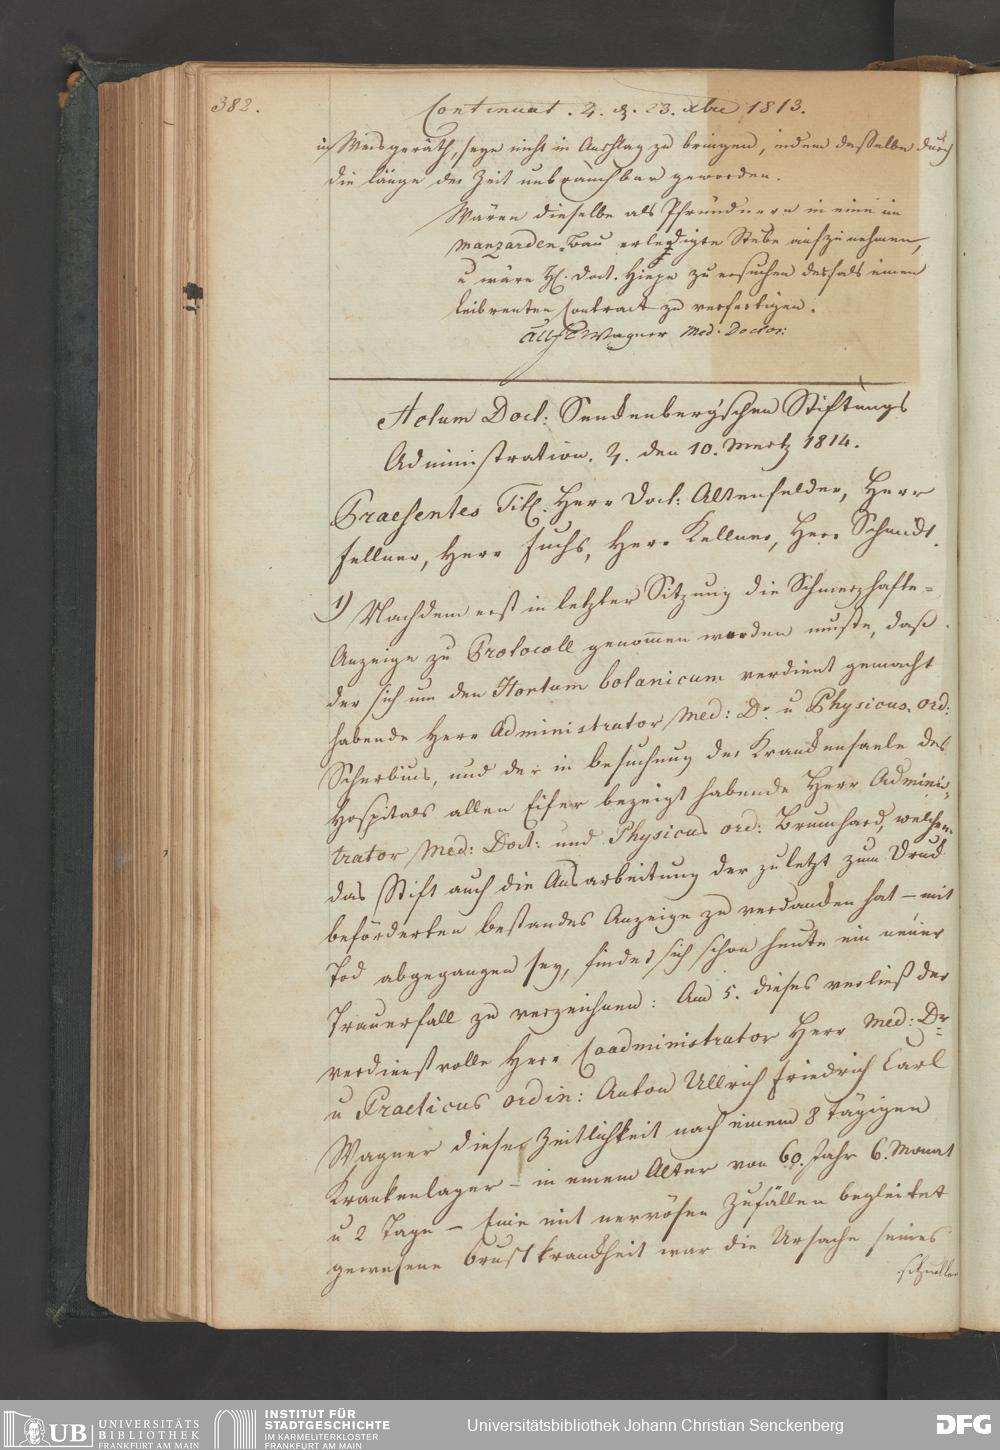 382.
Continuat. 4. d. 23. xbre 1813.
in Weisgeräth, seye nicht in Anschlag zu bringen, indem dasselbe durch
die länge der Zeit unbrauchbar geworden.
Wären dieselbe als Pfründnern in eine im
manzarden-Bau erledigte Stube aufzunehmen,
u wäre H. Doct. Hiepe zu ersuchen desfals einen
leibrenten Contract zu verfertigen.
Wagner Med. Doctor:
Actum Doct: Senckenberg'schen Stiftungs
Administration. 4. den 10. Mertz 1814.
Praesentes Tit. Herr Doct: Altenfelder, Herr
Fellner, Herr Fuchs, Herr Kellner, Herr Schmidt.
1) Nachdem erst in letzter Sitzung die Schmerzhafte-
Anzeige zu Protocoll genom̅en werden muste, daß
der sich um den Hortum botanicum verdient gemacht
habende Herr Administrator Med: Dr. u Physicus. ord:
Scherbius, und der in besuchung der Krancken saele des
Hospitals allen Eifer bezeigt habende Herr Adminis-
trator Med: Doct: und Physicus ord: Brumhard, welchem
das Stift auch die Ausarbeitung der zuletzt zum Druck
beförderten bestandes Anzeige zu verdancken hat – mit
Tod abgegangen sey, findet sich schon heute ein neuer
Trauerfall zu verzeichnen: Am 5. dieses verließ der
verdienstvolle Herr Coadministrator Herr Med: Dr.
u Practicus ordin: Anton Ullrich Friedrich Carl
Wagner diese Zeitlichkeit nach einem 8 tägigen
Krankenlager – in einem Alter von 60. Jahr 6. Monat
u 2 Tage – Eine mit nervösen Zufällen begleitet
gewesene Brustkranckheit war die Ursache seines
schnellen
UB UNIVERSITÄTS
BIBLIOTHEK
FRANKFURT AM MAIN
INSTITUT FÜR
STADTGESCHICHTE
IM KARMELITERKLOSTER
FRANKFURT AM MAIN
Universitätsbibliothek Johann Christian Senckenberg
DFG